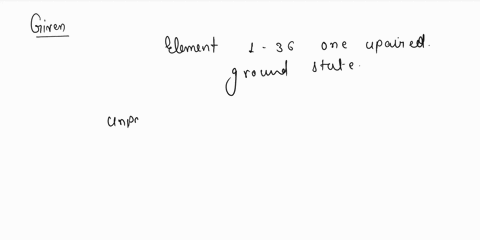 Given
Element 1-36 one upaired.
ground state.
unpr